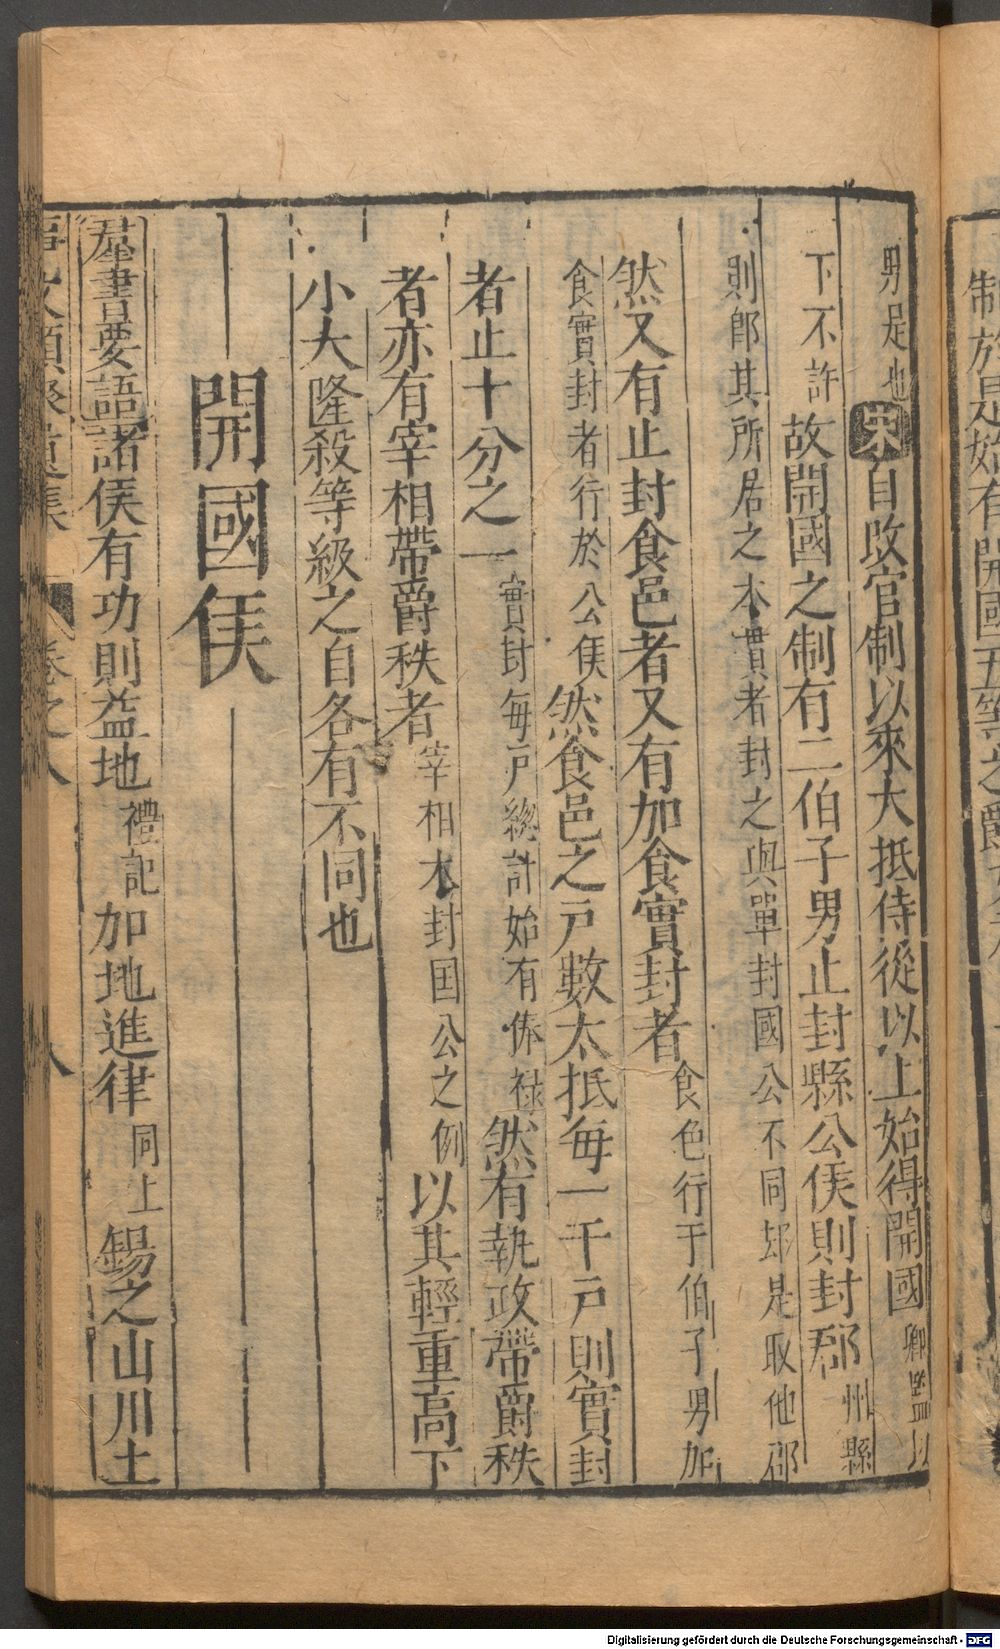 制於是始有開國五等之爵
男足也宋自改官制以來大抵侍從以上始得開國卿監以
下不許故開國之制有二伯子男止封縣公侯則封郡州縣
則郎其所居之本貫者封之與單封國公不同却是取他邵
然又有止封食邑者又有加食實封者食色行于伯子男加
食實封者行於公侯然食邑之戸數太抵每一千戸則實封
者止十分之一實封每戸總計始有俸祿然有執政帶爵秩
者亦有宰相帶爵秩者宰相大封国公之例以其輕重高下
小大隆殺等級之自各有不同也
開國侯
羣書要語諸侯有功則益地禮記加地進律同上錫之山川土
事文類聚遺集 卷之八 八
Digitalisierung gefördert durch die Deutsche Forschungsgemeinschaft - DFG